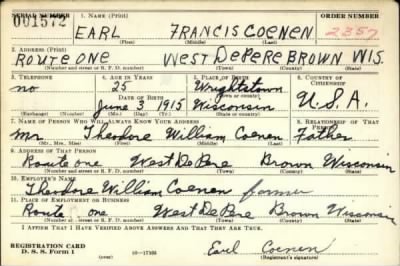 SERIAL NUMBER 1. NAME (Print) ORDER NUMBER
001572 EARL FRANCIS COENEN 2357
(First) (Middle) (Last)
2. ADDRESS (Print)
ROUTE ONE WEST DEPERE BROWN WIS.
(Number and street or R. F. D. number) (Town) (County) (State)
3. TELEPHONE 4. AGE IN YEARS 5. PLACE OF BIRTH 6. COUNTRY OF CITIZENSHIP
no 25 Wrightstown
DATE OF BIRTH (Town or county)
June 3 1915 Wisconsin U.S.A.
(Exchange) (Number) (Mo.) (Day) (Yr.) (State or country)
7. NAME OF PERSON WHO WILL ALWAYS KNOW YOUR ADDRESS 8. RELATIONSHIP OF THAT PERSON
Mr. Theodore William Coenen Father
(Mr., Mrs., Miss) (First) (Middle) (Last)
9. ADDRESS OF THAT PERSON
Route one West De Pere Brown Wisconsin
(Number and street or R. F. D. number) (Town) (County) (State)
10. EMPLOYER'S NAME
Theodore William Coenen farmer
11. PLACE OF EMPLOYMENT OR BUSINESS
Route one West De Pere Brown Wisconsin
(Number and street or R. F. D. number) (Town) (County) (State)
I AFFIRM THAT I HAVE VERIFIED ABOVE ANSWERS AND THAT THEY ARE TRUE.
REGISTRATION CARD
D. S. S. Form 1 16—17105 Earl Coenen
(Registrant's signature)